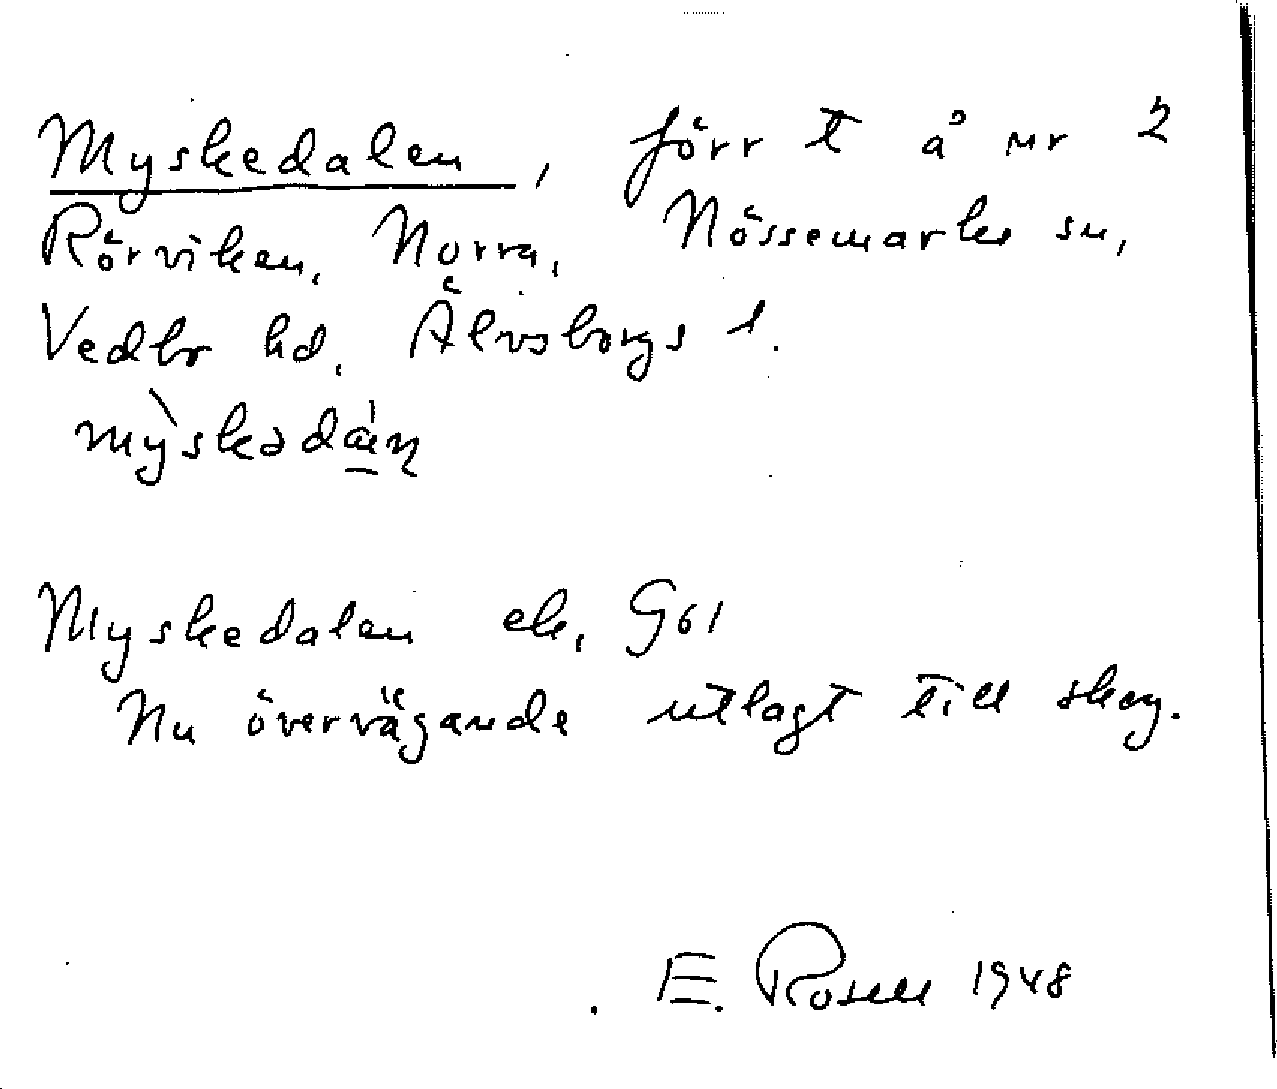 Myskedalen, förr t å nr 2
Rörviken, Norra, Nössemarks sn,
Vedbo hd, Älvsborgs l.
mỳskədán
Myskedalen ek. G61
Nu övervägande utlagt till skog.
E. Rosell 1948